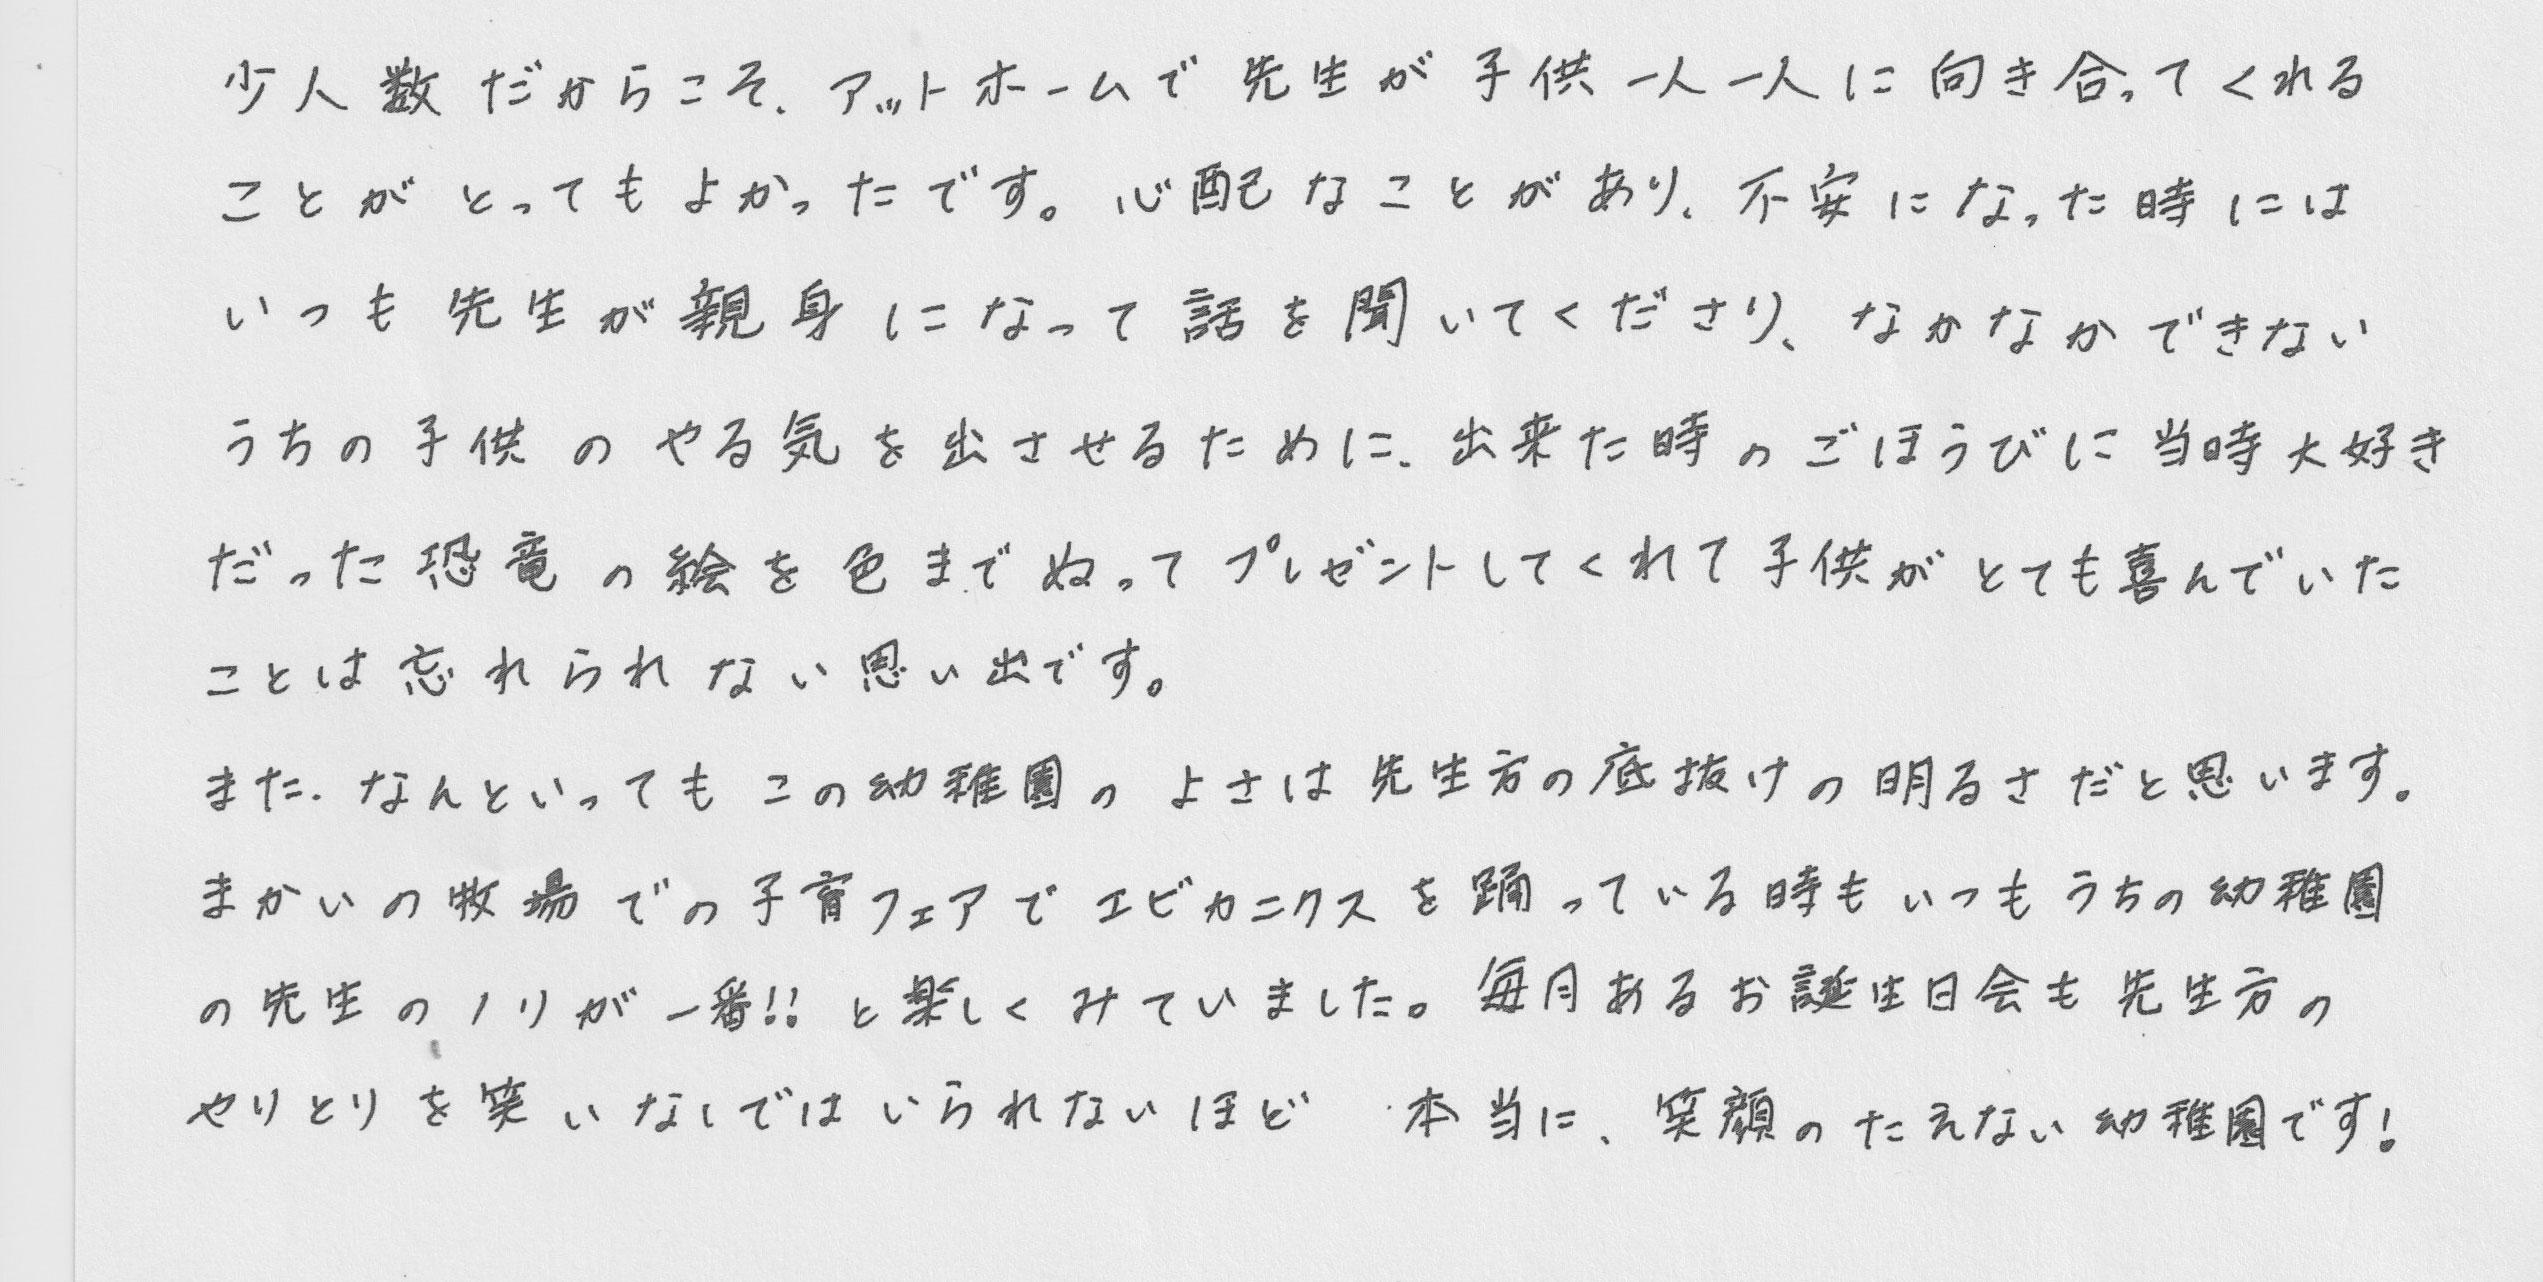 少人数だからこそ、アットホームで先生が子供一人一人に向き合ってくれる
ことがとってもよかったです。心配なことがあり、不安になった時には
いつも先生が親身になって話を聞いてくださり、なかなかできない
うちの子供のやる気を出させるために、出来た時のごほうびに当時大好き
だった恐竜の絵を色までぬってプレゼントしてくれて子供がとても喜んでいた
ことは忘れられない思い出です。
また、なんといってもこの幼稚園のよさは先生方の底抜けの明るさだと思います。
まかいの牧場での子育フェアでエビカニクスを踊っている時もいつもうちの幼稚園
の先生のノリが一番!!と楽しくみていました。毎月あるお誕生日会も先生方の
やりとりを笑いなしではいられないほど 本当に、笑顔のたえない幼稚園です!